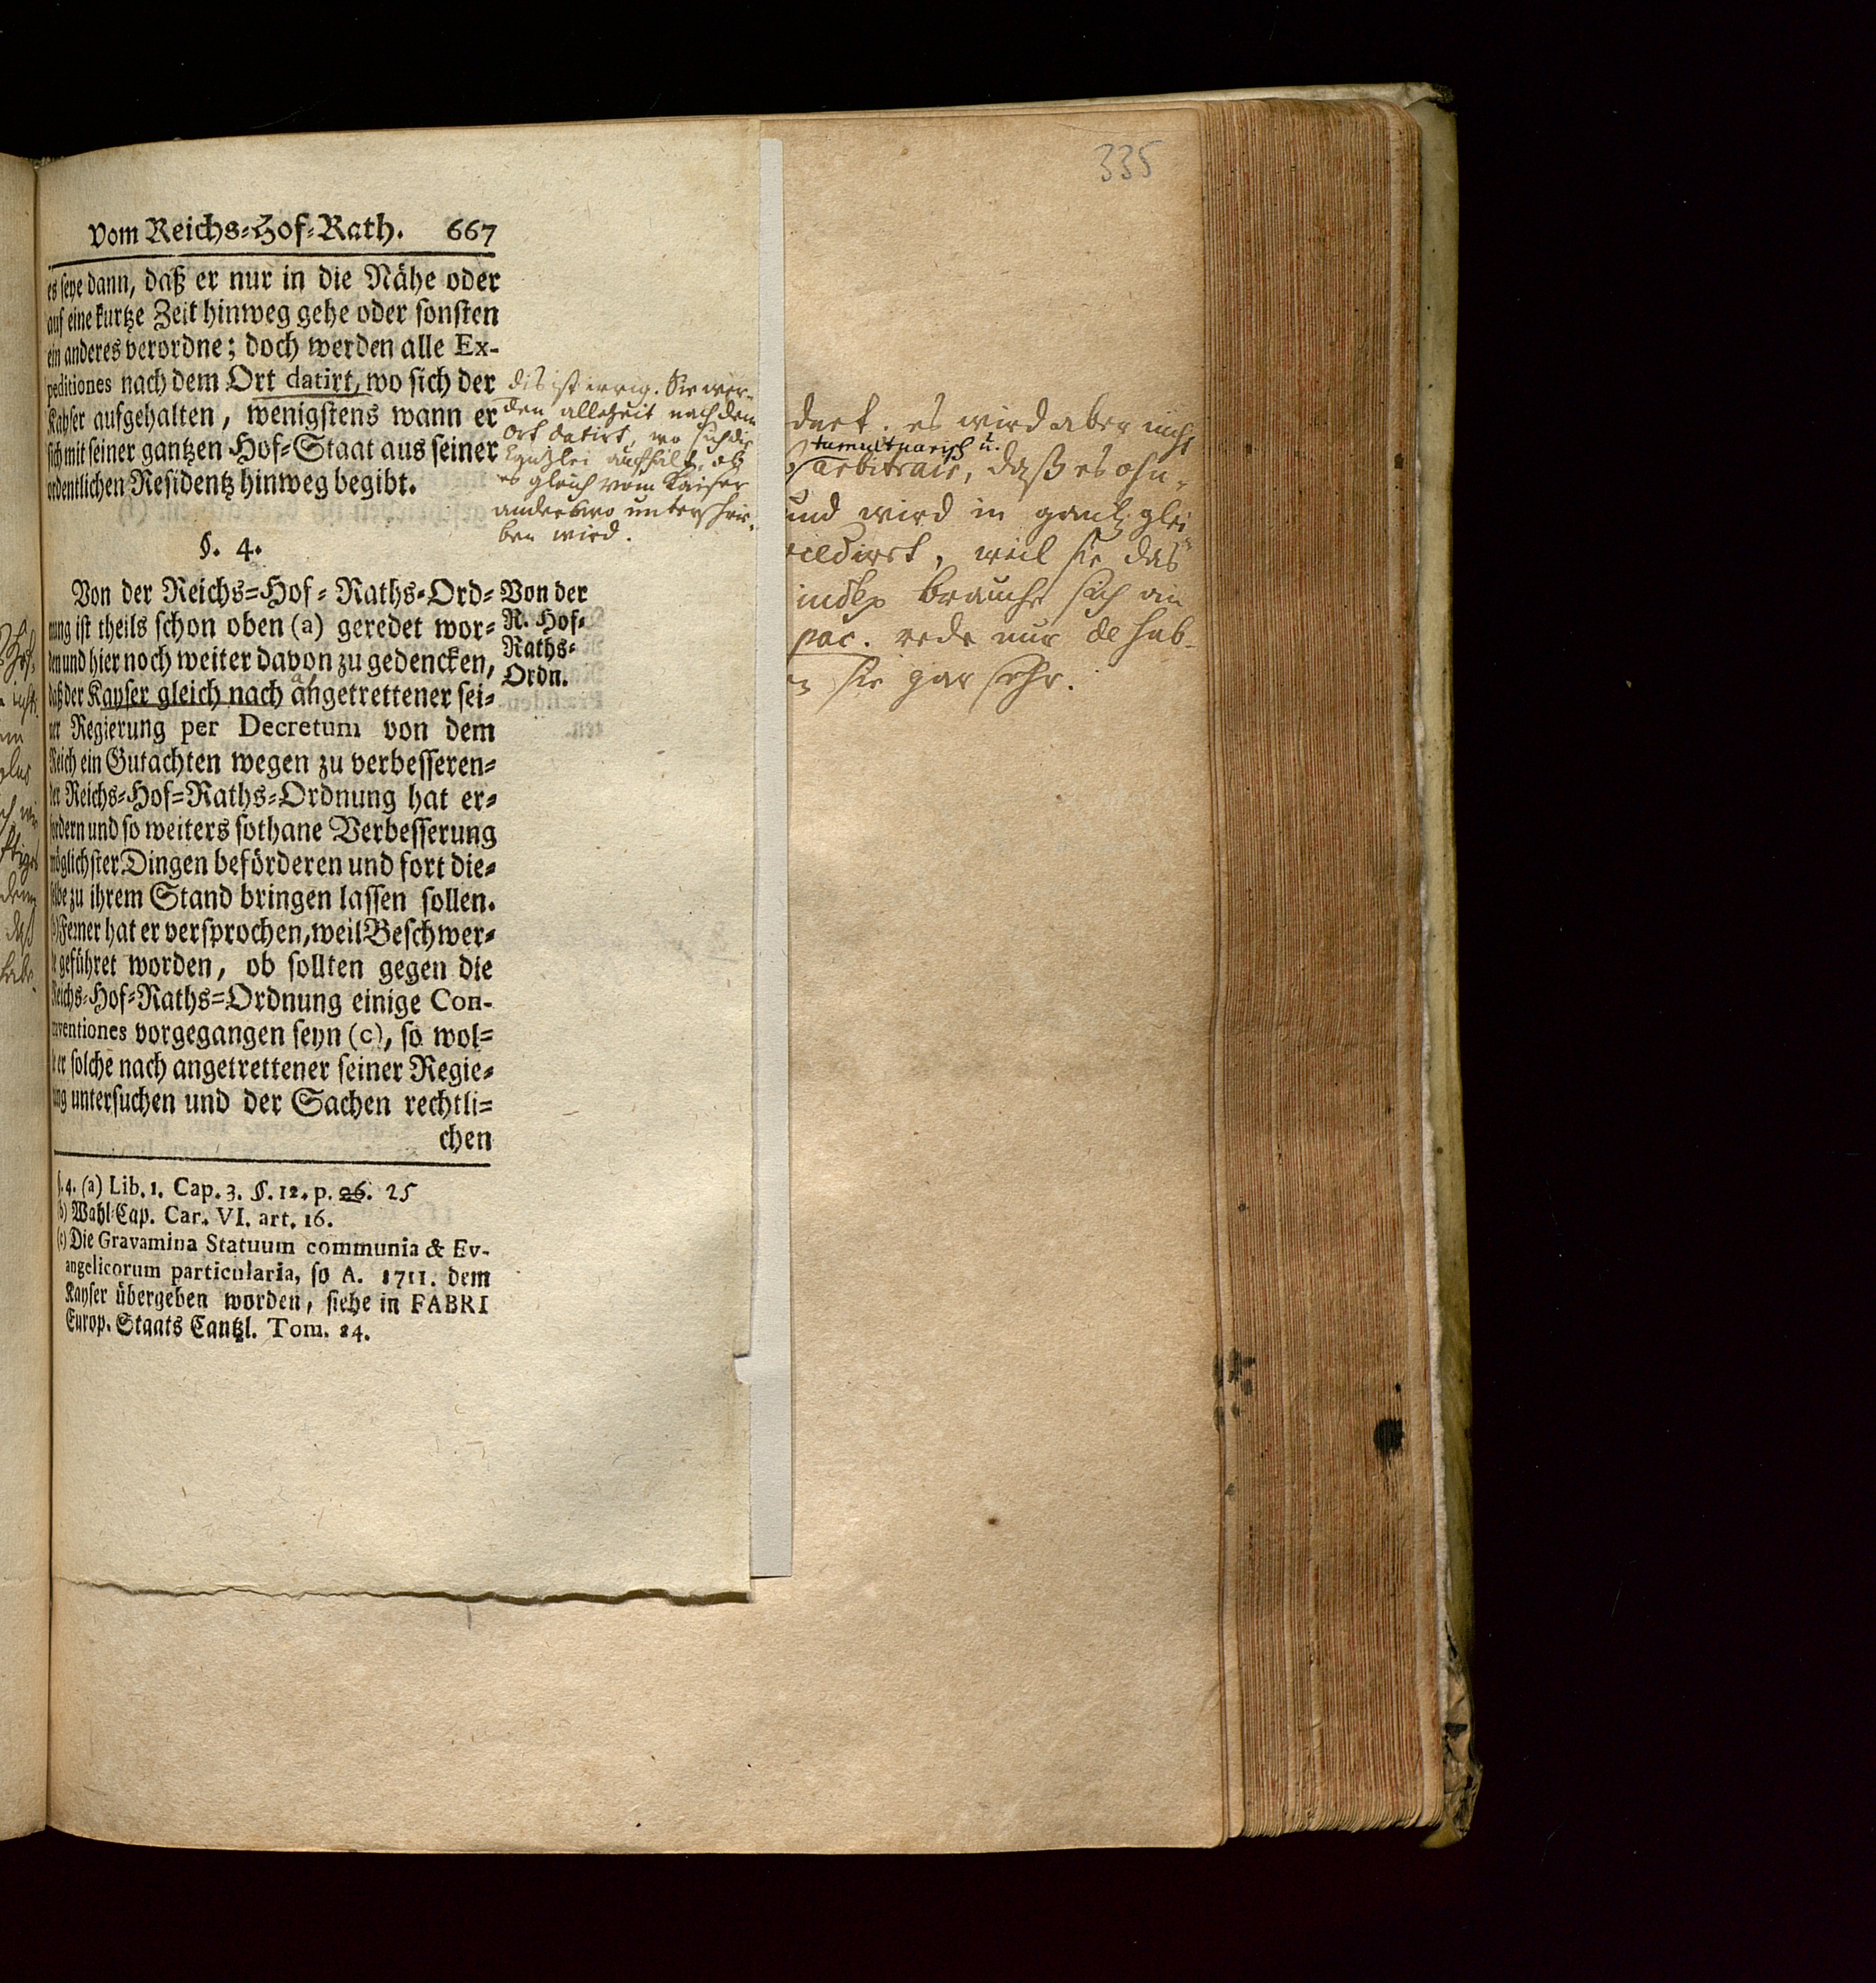 335
Vom Reichs-Hof-Rath. 667
es seye dann, daß er nur in die Nähe oder
auf eine kurtze Zeit hinweg gehe oder sonsten
ein anderes verordne; doch werden alle Ex-
peditiones nach dem Ort datirt, wo sich der
Kayser aufgehalten, wenigstens wann er
sich mit seiner gantzen Hof-Staat aus seiner
ordentlichen Residentz hinweg begibt.
dis ist irrig. Sie wer-
den allezeit nach dem
Ort datirt, wo sich die
Kanzlei aufhält, ob
es gleich vom Kaiser
anderswo unterschrie-
ben wird.
§. 4.
Von der Reichs-Hof-Raths-Ord-
nung ist theils schon oben (a) geredet wor-
den und hier noch weiter davon zu gedencken,
daß der Kayser gleich nach angetrettener sei-
ner Regierung per Decretum von dem
Reich ein Gutachten wegen zu verbesseren-
der Reichs-Hof-Raths-Ordnung hat er-
fordern und so weiters sothane Verbesserung
möglichster Dingen beförderen und fort die-
selbe zu ihrem Stand bringen lassen sollen.
(b) Ferner hat er versprochen, weil Beschwer-
de geführet worden, ob sollten gegen die
Reichs-Hof-Raths-Ordnung einige Con-
traventiones vorgegangen seyn (c), so wol-
le er solche nach angetrettener seiner Regie-
rung untersuchen und der Sachen rechtli-
chen
Von der
R. Hof-
Raths-
Ordn.
§. 4. (a) Lib. 1. Cap. 3. §. 12. p. 26. 25
(b) Wahl-Cap. Car. VI. art. 16.
(c) Die Gravamina Statuum communia & Ev-
angelicorum particularia, so A. 1711. dem
Kayser übergeben worden, siehe in FABRI
Europ. Staats Cantzl. Tom. 24.
es wird aber nicht
tumultuarisch u.
arbitrair, daß es ohn-
und wird in
weil sie das
brauche sich
pac. rede nur de
sie gar sehr.